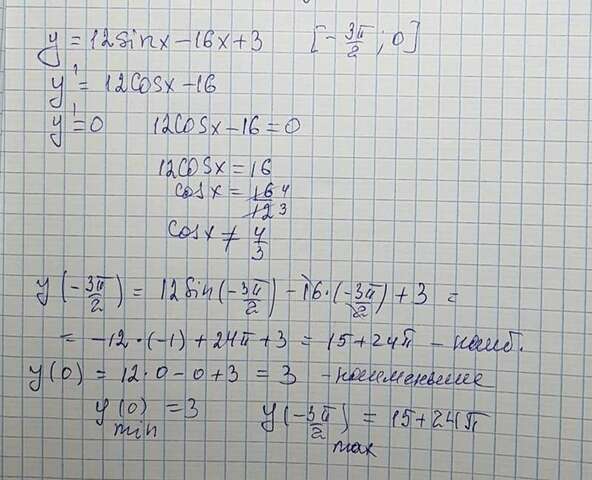 y = 12sinx - 16x + 3 [-3π/2 ; 0]
y' = 12cosx - 16
y' = 0 12cosx - 16 = 0
12cosx = 16
cosx = 16/12 4/3
cosx ≠ 4/3
y(-3π/2) = 12sin(-3π/2) - 16·(-3π/2) + 3 =
= -12·(-1) + 24π + 3 = 15 + 24π - наиб.
y(0) = 12·0 - 0 + 3 = 3 - наименьшее
y(0) = 3 y(-3π/2) = 15 + 24π
min max